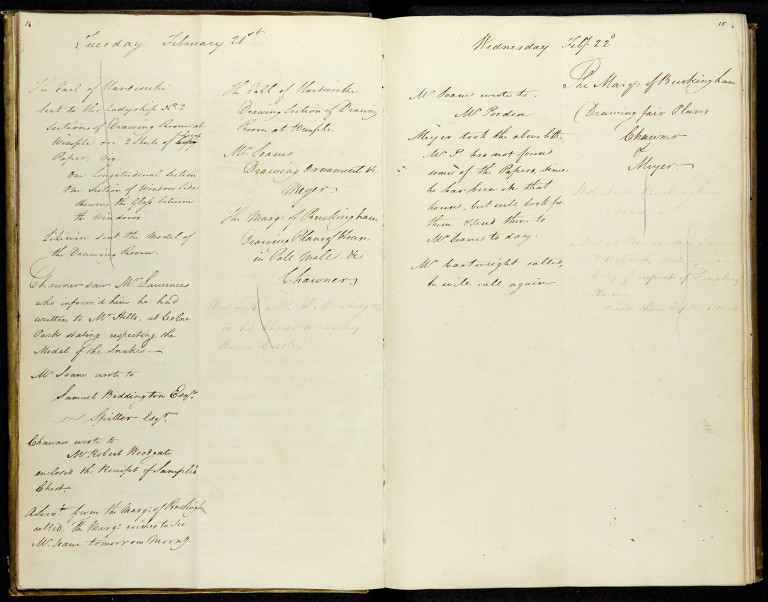 14
Tuesday February 21st
The Earl of Hardwicke
Sent to Her Ladyship No. 2
Sections of Drawing Room at
Wimple on 2 Sheets of
Paper, Viz.
One Longitudinal Section
One Section of Window Side
shewing the Glass between
the Windows
Likewise sent the Model of
the Drawing Room.
Chawner saw Mr. Lawrence
who inform'd him he had
written to Mr Hills, at Colne
Park stating respecting the
Model of the Snakes
Mr Soane wrote to
Samuel Boddington Esqr.
Spiller Esqr.
Chawner wrote to
Mr. Robert Woodgate
enclosed the Receipt of Sample
Chest
A Servt. from the Marq: of Buckingham
called, the Marq: wishes to see
Mr. Soane tomorrow Morng.
The Earl of Hardwicke
Drawing Section of Drawing
Room at Wimple.
Mr. Soane
Drawing Ornament &c
Meyer
The Marq: of Buckingham
Drawing Plans of House
in Pall Mall &c
Chawner
15
Wednesday Feby. 22d
Mr Soane wrote to
Mr Porden
Meyer took the above letter
Mr. P. has not found
some of the Papers, since
he has been in that
house, but will look for
them & send them to
Mr Soane to day.
Mr Cartwright called,
to will call again.
The Marq: of Buckingham
Drawing fair Plans
Chawner
&
Meyer